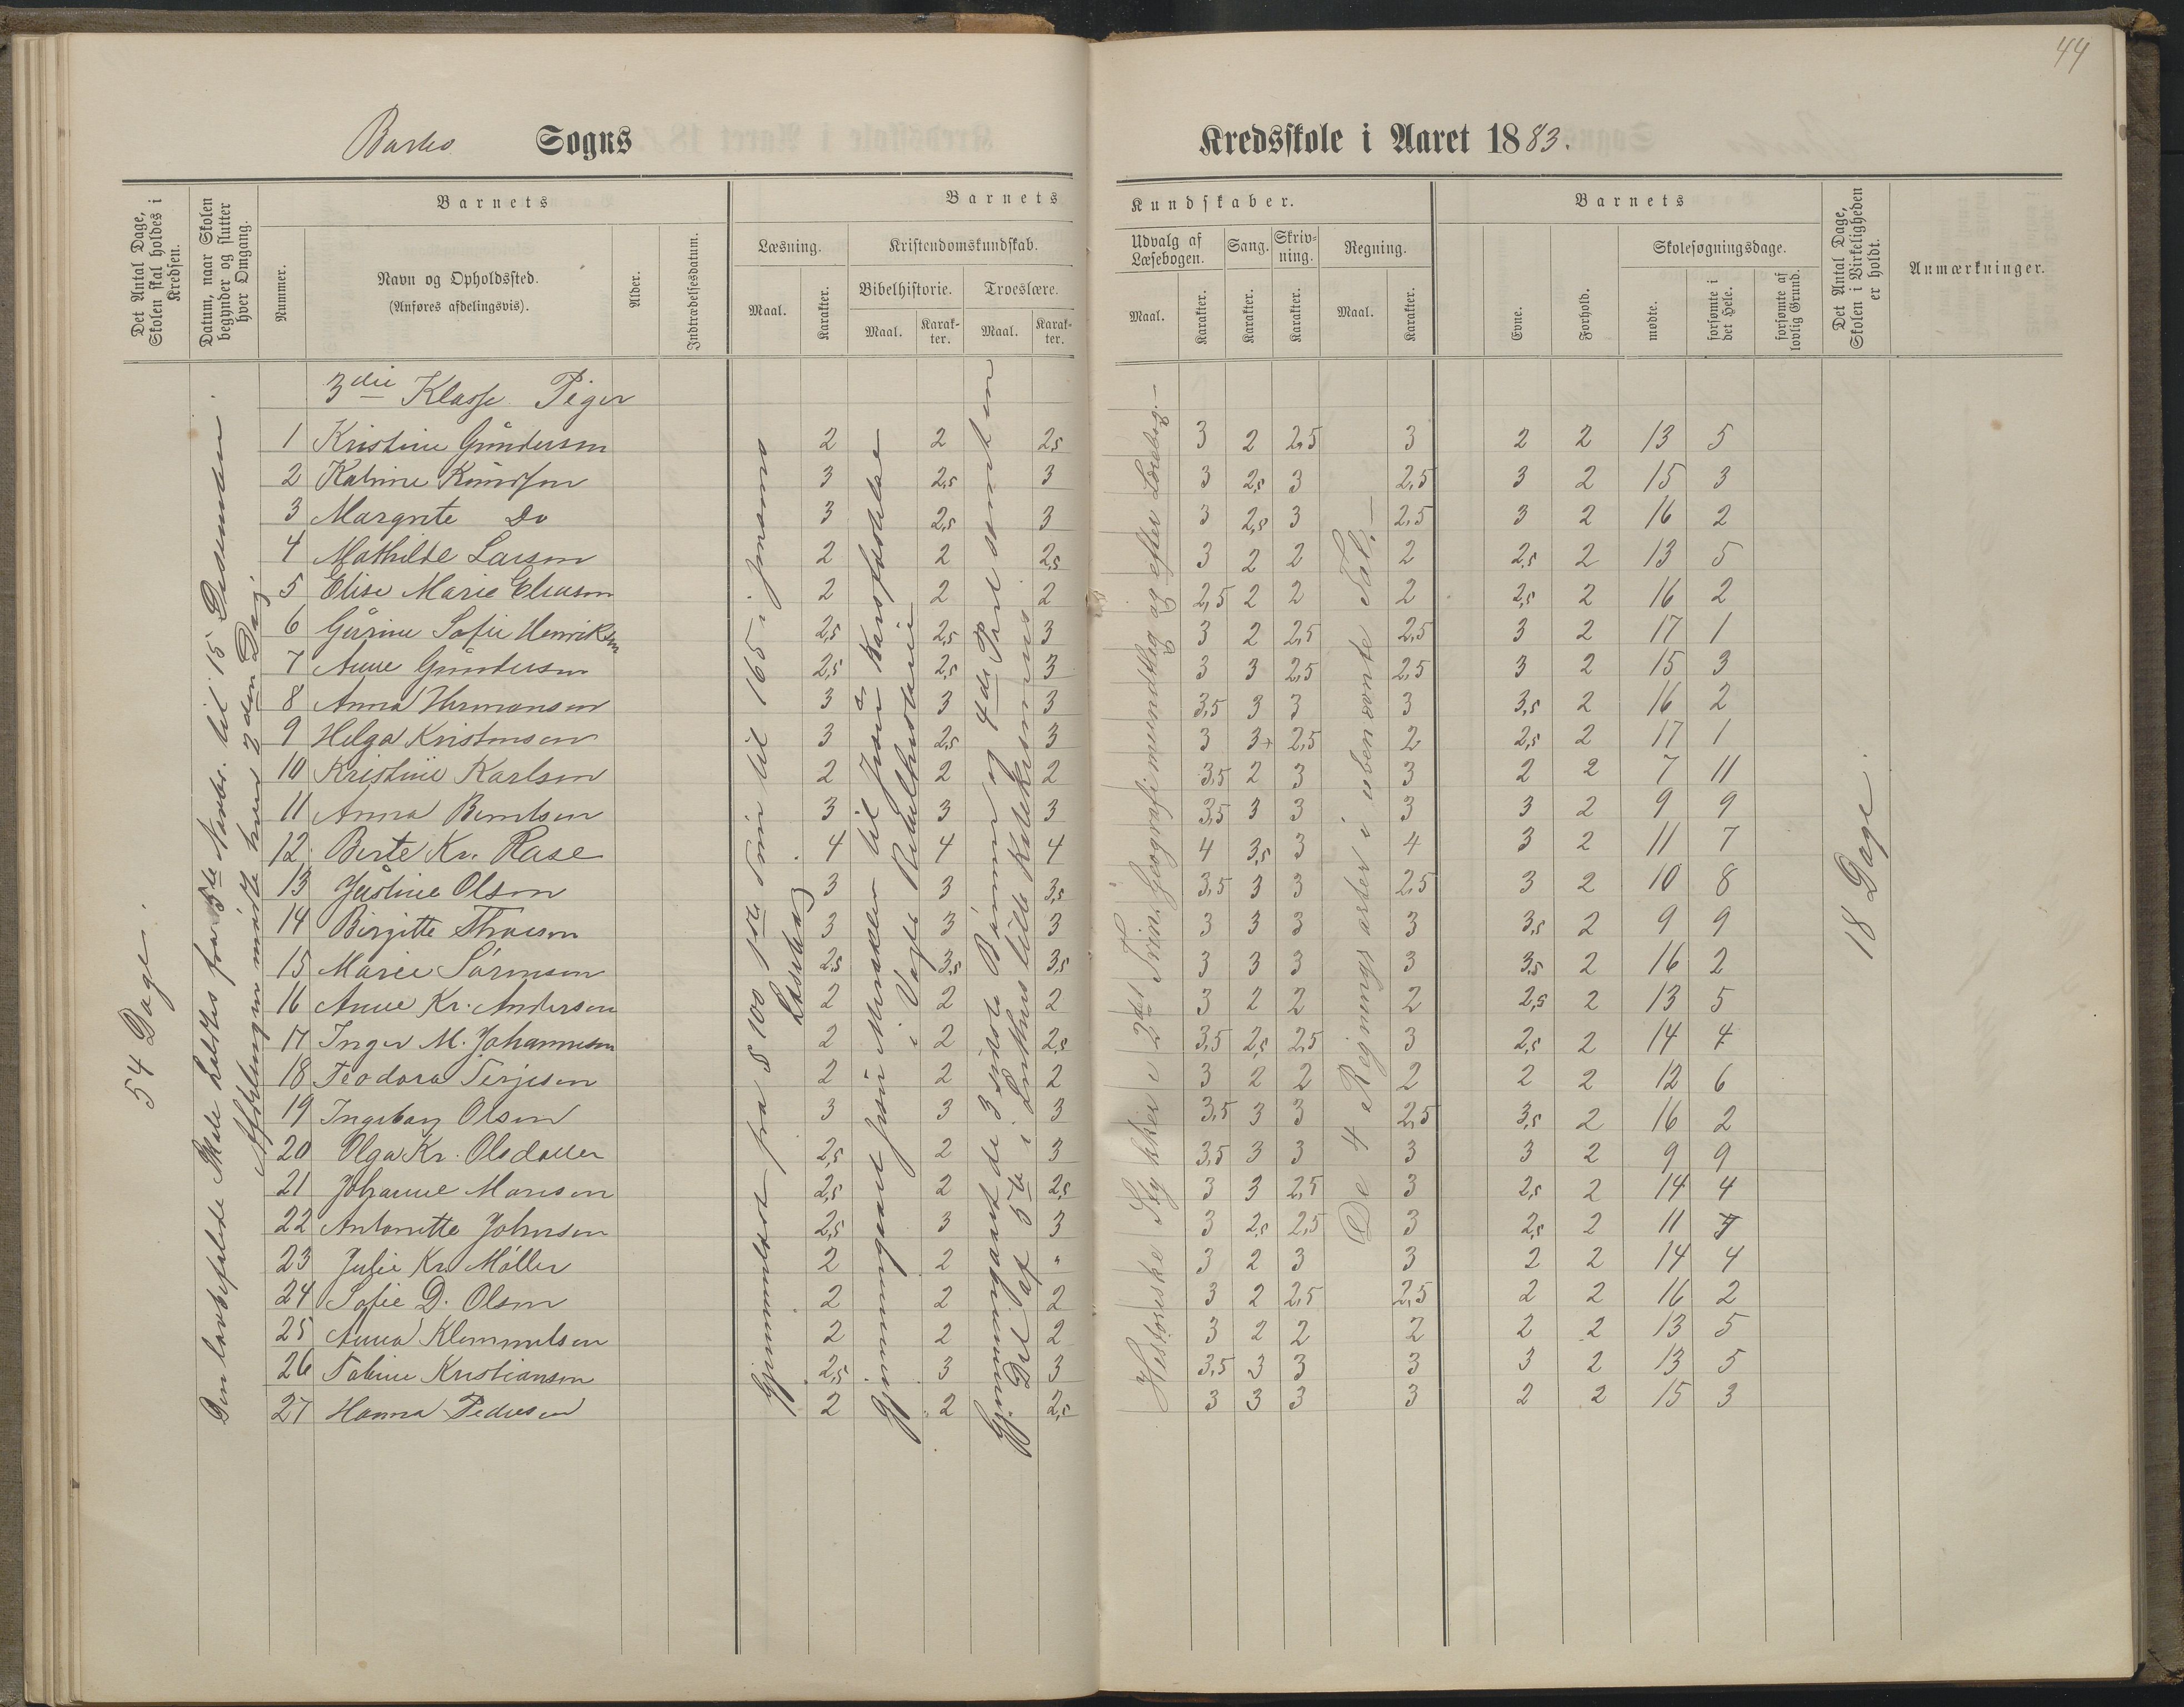 44
Barbo Sogns
Kredsskole i Aaret 1883.
Det Antal Dage, Skolen skal holdes i Kredsen.
Datum, naar Skolen begynder og slutter hver Omgang.
Barnets
Nummer.
Navn og Opholdssted.
(Anføres afdelingsvis).
Alder.
Indtrædelsesdatum.
Barnets
Læsning.
Maal.
Karakter.
Kristendomskundskab.
Bibelhistorie.
Maal.
Karakter.
Troeslære.
Maal.
Karakter.
Kundskaber.
Udvalg af Læsebogen.
Maal.
Karakter.
Sang.
Karakter.
Skrivning.
Karakter.
Regning.
Maal.
Karakter.
Barnets
Evne.
Forhold.
Skolesøgningsdage.
mødte.
forsømte i det Hele.
forsømte af lovlig Grund.
Det Antal Dage, Skolen i Virkeligheden er holdt.
Anmærkninger.
54 Dage.
Den lovbefalede Skole holdtes fra 5te Novbr. til 15 Desember.
Afdelingen mødte hver 2den Dag.
3die Klasse Piger
1 Kristine Gundersen 2 2 2,5 3 2 2,5 3 2 2 13 5
2 Katrine Knudsen 3 2,5 3 3 2,5 3 2,5 3 2 15 3
3 Margrete Do 3 2,5 3 3 2,5 3 2,5 3 2 16 2
4 Mathilde Larsen 2 2 2,5 3 2 2 2 2,5 2 13 5
5 Elise Marie Eliasen 2 2 2 2,5 2 2 2 2,5 2 16 2
6 Gurine Sofie Henriksen 2,5 2,5 3 3 2 2,5 2,5 3 2 17 1
7 Anne Gundersen 2,5 2,5 3 3 3 2,5 2,5 3 2 15 3
8 Anna Hermansen 3 3 3 3,5 3 3 3 3,5 2 16 2
9 Helga Kristensen 3 2,5 3 3 3+ 2,5 2 2,5 2 17 1
10 Kristine Karlsen 2 2 2 3,5 2 3 3 2 2 7 11
11 Anna Berntsen 3 3 3 3,5 3 3 3 3 2 9 9
12 Berte Kr. Rase 4 4 4 4 3,5 3 4 3 2 11 7
13 Justine Olsen 3 3 3,5 3,5 3 3 2,5 3 2 10 8
14 Birgitte 3 3 3 3 3 3 3 3,5 2 9 9
15 Marie Sørensen 2,5 3,5 3,5 3 3 3 3 3,5 2 16 2
16 Anne Kr. Andersen 2 2 2 3 2 2 2 2,5 2 13 5
17 Inger M. Johannesen 2 2 2,5 3,5 2,5 2,5 3 2,5 2 14 4
18 Teodora Terjesen 2 2 2 3 2 2 2 2 2 12 6
19 Ingeborg Olsen 3 3 3 3,5 3 3 2,5 3,5 2 16 2
20 Olga Kr. Olsdatter 2,5 2 3 3,5 3 3 3 3 2 9 9
21 Johanne Monsen 2,5 2 2,5 3 3 2,5 3 2,5 2 14 4
22 Antonette Johnsen 2,5 3 3 3 2,5 2,5 3 2,5 2 11 7
23 Julie Kr. Møller 2 2 " 3 2 3 3 2 2 14 4
24 Sofie D. Olsen 2 2 2 3 2 2,5 2,5 2 2 16 2
25 Anna Klemmetsen 2 2 2 3 2 2 2 2 2 13 5
26 Tobine Kristiansen 2,5 3 3 3,5 3 3 3 3 2 13 5
27 Hanna Pedersen 2 2 2,5 3 3 3 3 2 2 15 3
Gjennemlæst fra S 100 1ste Trin til 165 i Jensens
Læsebog
Gjennemgaaet fra Mirakler til Jesu Korsfæstelse
i Vogts Bibelhistorie
Gjennemgaaet de 3 sidste Bønner og 4de Part samt en
Del af 5te i Luthers lille Katekismus
Historiske Stykker i 2det Trin. Geografi mundtlig og efter Læsebog.
De 4 Regningsarter i ubenævnte Tal.
18 Dage.